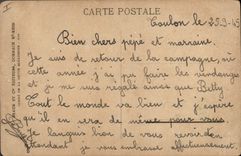 CARTE POSTALE
Toulon le 25.9.45
Bien chers pépé et marraine.
Je suis de retour de la campagne, où
cette année j'ai pu faire les vendanges
et je me suis régalé ainsi que Betty
Tout le monde va bien et j'espère
qu'il en sera de même pour vous
Je languis bien de vous revoir. En
attendant je vous embrasse affectueusement.